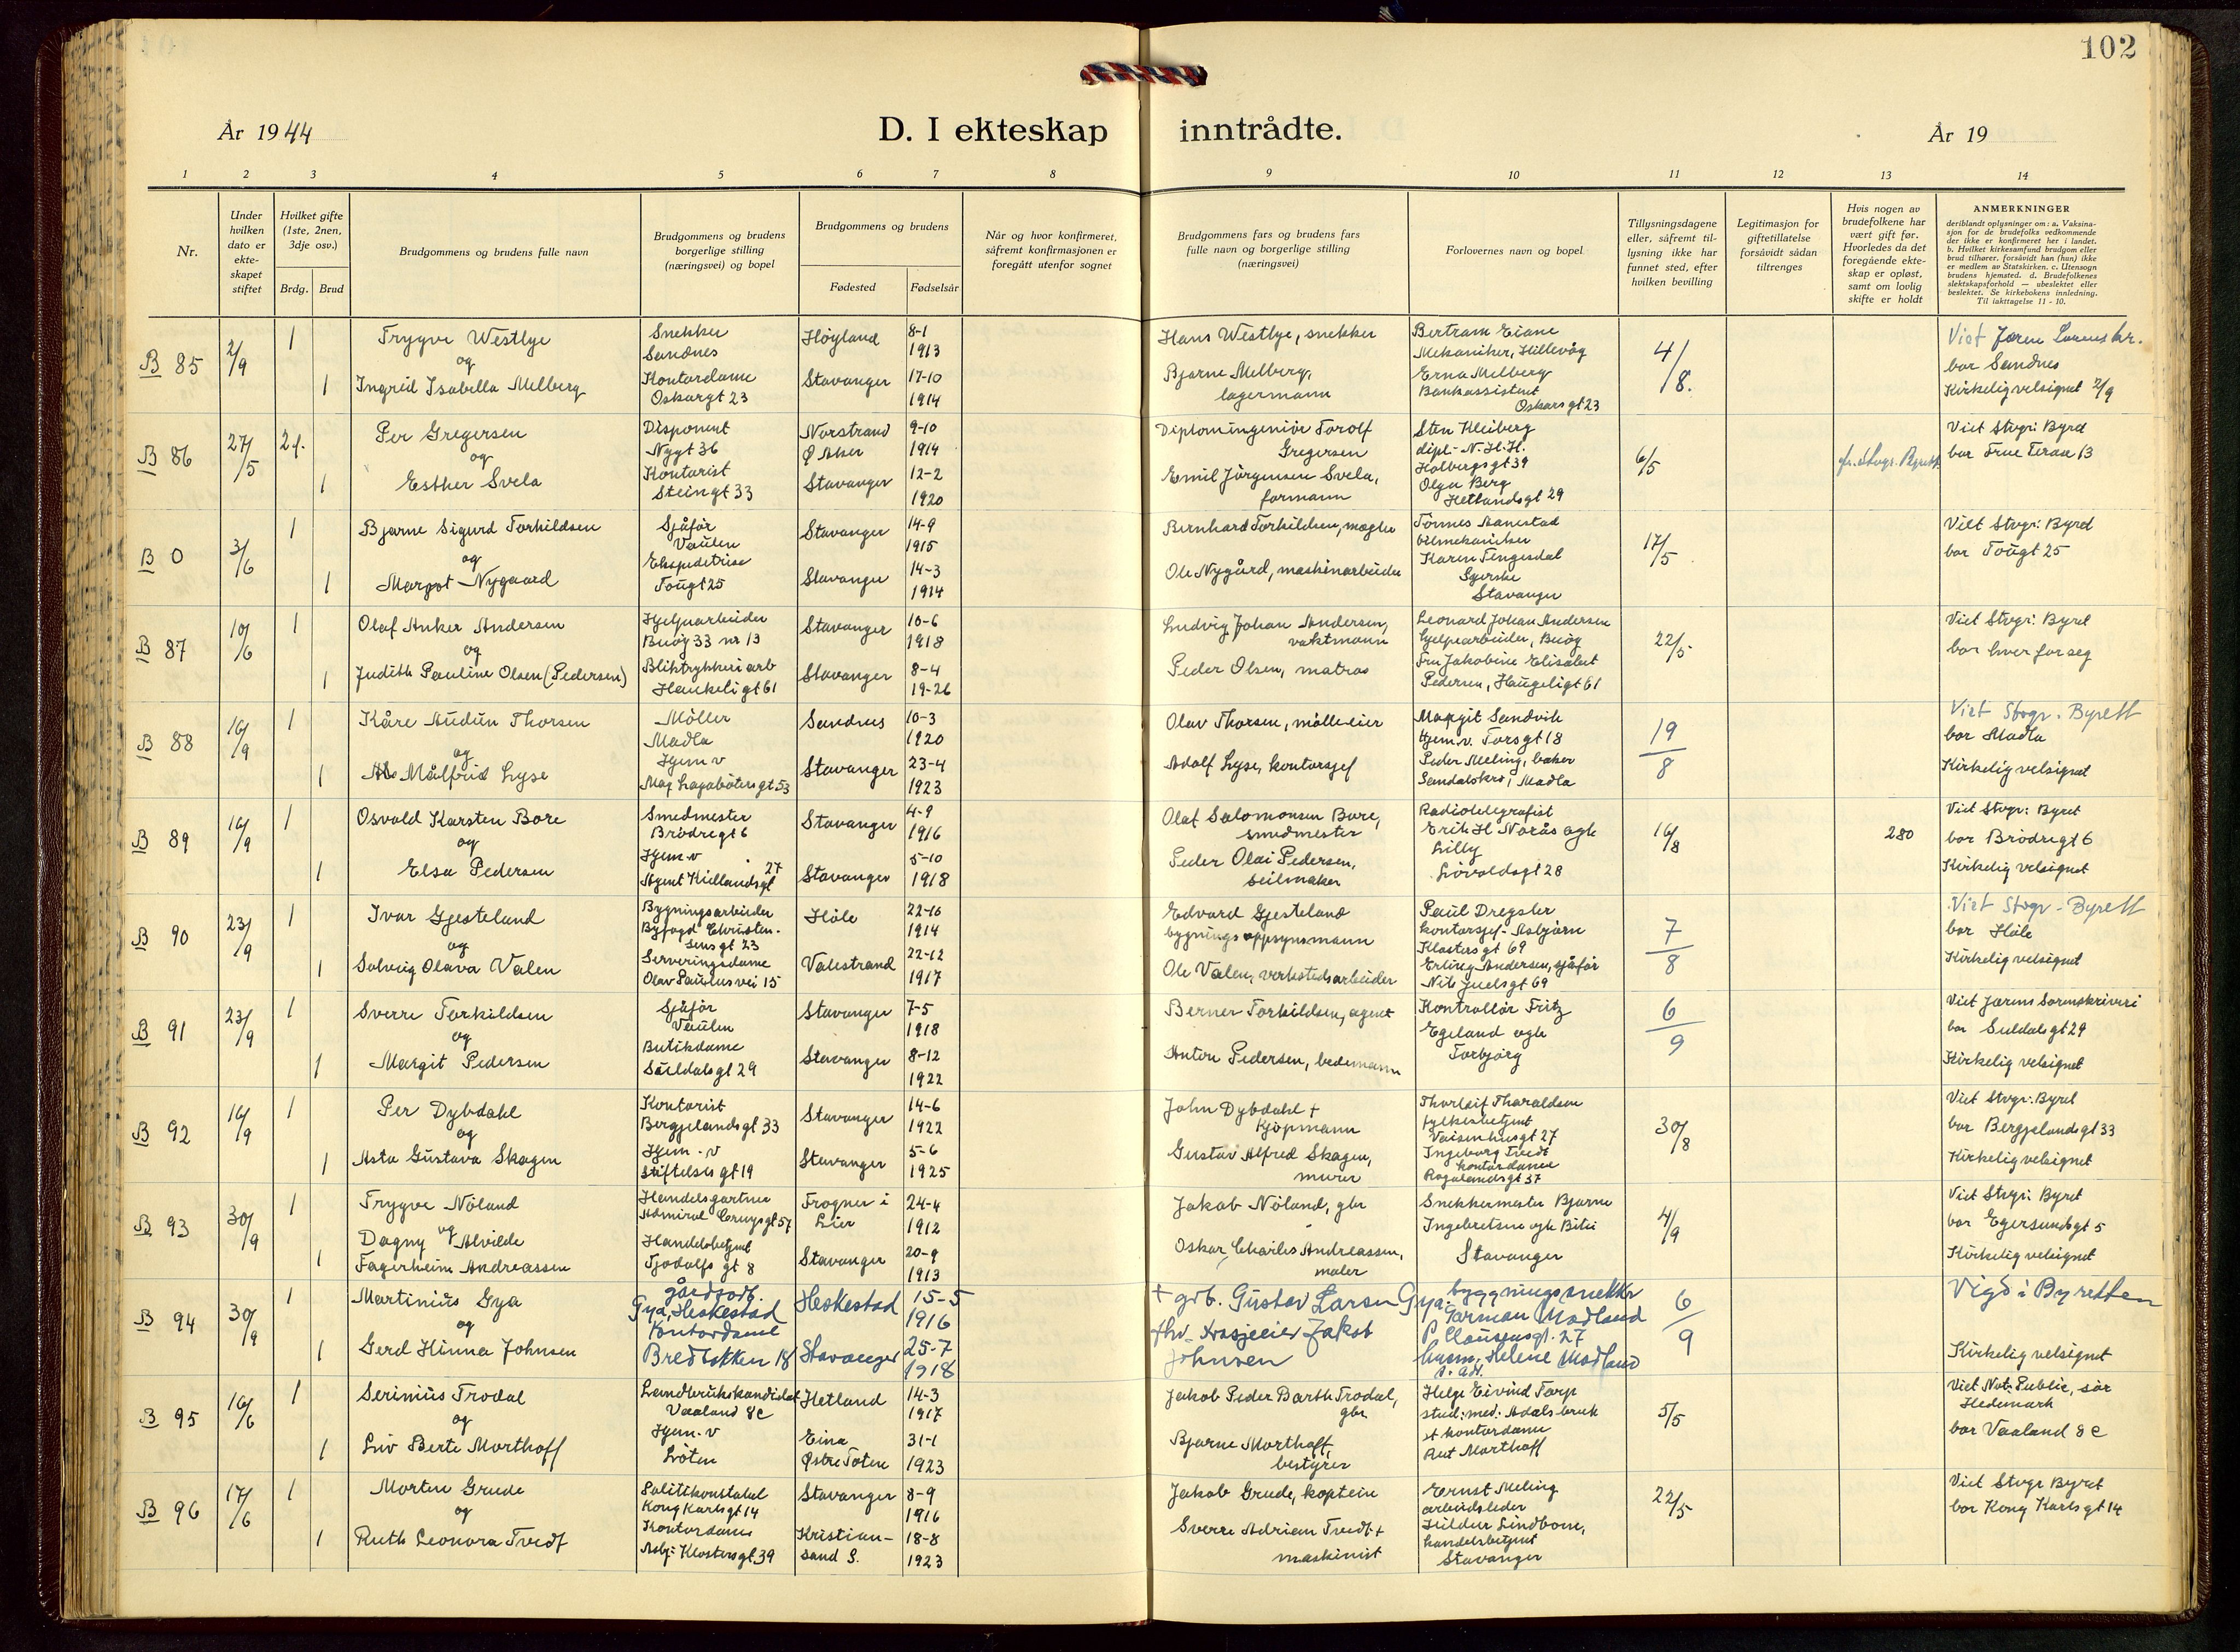 102
År 1944
D. I ekteskap inntrådte.
År 19
1 2 3 4 5 6 7 8 9 10 11 12 13 14
Nr.
Under hvilken dato er ekteskapet stiftet
Hvilket gifte (1ste, 2nen, 3dje osv.)
Brdg. Brud
Brudgommens og brudens fulle navn
Brudgommens og brudens borgerlige stilling (næringsvei) og bopel
Brudgommens og brudens
Fødested Fødselsår
Når og hvor konfirmeret, såfremt konfirmasjonen er foregått utenfor sognet
Brudgommens fars og brudens fars fulle navn og borgerlige stilling (næringsvei)
Forlovernes navn og bopel
Tillysningsdagene eller, såfremt tillysning ikke har funnet sted, efter hvilken bevilling
Legitimasjon for giftetillatelse forsåvidt sådan tiltrenges
Hvis nogen av brudefolkene har vært gift før. Hvorledes da det foregående ekteskap er opløst, samt om lovlig skifte er holdt
ANMERKNINGER
deriblandt oplysninger om: a. Vaksinasjon for de brudefolks vedkommende der ikke er konfirmeret her i landet. b. Hvilket kirkesamfund brudgom eller brud tilhører, forsåvidt han (hun) ikke er medlem av Statskirken. c. Utensogn brudens hjemsted. d. Brudefolkenes slektskapsforhold — ubeslektet eller beslektet. Se kirkebokens innledning. Til iakttagelse 11 - 10.
B 85 2/9 1 Trygve Westlye Snekker Sandnes Høyland 8-1 1913 Hans Westlye, snekker Bertram Eiane Mekaniker, Hillevåg 4/8. Viet Jæren
og
1 Ingrid Isabella Melberg Kontordame Oskarsgt 23 Stavanger 17-10 1914 Bjarne Melberg, lagermann Erna Melberg Bankassistent Oskarsgt 23 bor Sandnes Kirkelig velsignet 2/9
B 86 27/5 2g. Per Gregersen Disponent Nygt 36 Nørstrand Ø Aker 9-10 1914 Diplomingeniør Torolf Gregersen Sten Kleiberg dipl.- N.H.H. Holbergsgt 39 6/5 Viet Stvgr: Byret
og
1 Esther Svela Kontorist Steingt 33 Stavanger 12-2 1920 Emil Jörgensen Svela, formann Olga Berg Hetlandsgt 29 bor Frue Terase 13
B 0 3/6 1 Bjarne Sigurd Torkildsen Sjåfør Vaulen Stavanger 14-9 1915 Bernhard Torkildsen, megler Tönnes Aanestad bilmekaniker 17/5 Viet Stvgr: Byret
og
1 Margot Nygaard Ekspeditrise Tougt 25 Stavanger 14-3 1914 Ole Nygård, maskinarbeider Karen Tengesdal Syerske Stavanger bor Tougt 25
B 87 10/6 1 Olaf Anker Andersen Hjelpearbeider Buöy 33 nr 13 Stavanger 10-6 1918 Ludvig Johan Andersen, vaktmann Leonard Johan Andersen hjelpearbeider, Buöy 22/5 Viet Stvgr: Byret
og
1 Judith Pauline Olsen (Pedersen) Bliktrykkeriarb Haukeligt 61 Stavanger 8-4 19-26 Peder Olsen, matros Fru Jakobine Elisabet Pedersen, Haugeligt 61 bor hver for seg
B 88 16/9 1 Kåre Audun Thorsen Möller Madla Sandnes 10-3 1920 Olav Thorsen, mölleeier Margit Sandvik Hjem.v. Torsgt 18 19/8 Viet Stvgr. Byrett
og
1 Målfrid Lyse Hjem v Mag Lagabötersgt 53 Stavanger 23-4 1923 Adolf Lyse, kontorsjef Peder Meling, baker Madla bor Madla Kirkelig velsignet
B 89 16/9 1 Osvald Karsten Bore Smedmester Brödregt 6 Stavanger 4-9 1916 Olaf Salomonsen Bore, smedmester Radiotelegrafist Erik H Norås og fr Lilly Lövoldsgt 28 16/8 280 Viet Stvgr: Byret
og
1 Elsa Pedersen Hjem-v Agent Kiellandsgt 27 Stavanger 5-10 1918 Peder Olai Pedersen, seilmaker bor Brödregt 6 Kirkelig velsignet
B 90 23/9 1 Ivar Gjesteland Bygningsarbeider Byfogd Christensensgt 23 Höle 22-10 1914 Edvard Gjesteland bygningsoppsynsmann Paul Dregsler kontorsjef- Asbjørn Klostersgt 69 7/8 Viet Stvgr - Byrett
og
1 Solveig Olava Valen Serveringsdame Olav Paulusvei 15 Valestrand 22-12 1917 Ole Valen, verkstedsarbeider Erling Andersen, sjåfør Nils Juelsgt 69 bor Höle Kirkelig velsignet
B 91 23/9 1 Sverre Torkildsen Sjåfør Vaulen Stavanger 7-5 1918 Berner Torkildsen, agent Kontrollör Fritz Egeland og fr Torbjörg 6/9 Viet Jærens Sorenskriveri
og
1 Margit Pedersen Butikdame Suldalsgt 29 Stavanger 8-12 1922 Anton Pedersen, bedemann bor Suldalsgt 29 Kirkelig velsignet
B 92 16/9 1 Per Dybdahl Kontorist Bergjelandsgt 33 Stavanger 14-6 1922 John Dybdahl + kjöpmann Thorleif Tharaldsen fylkesbetjent Vaisenhusgt 27 30/8 Viet Stvgr: Byret
og
1 Asta Gustava Skagen Hjem-v Stiftelsesgt 19 Stavanger 5-6 1925 Gustav Alfred Skagen, murer Ingeborg Tvedt kontordame Rogalandsgt 37 bor Bergjelandsgt 33 Kirkelig velsignet
B 93 30/9 1 Trygve Nöland Handelsgartner Admiral Cruysgt 57 Frogner i Lier 24-4 1912 Jakob Nöland, gbr Snekkermester Bjarne Ingebretsen og fr 4/9 Viet Stvgr: Byret
og
1 Dagny Alvilde Fagerheim Andreassen Handelsbetjent Tjodolfs gt 8 Stavanger 20-9 1913 Oskar Charles Andreassen, maler Stavanger bor Egersundsgt 5 Kirkelig velsignet
B 94 30/9 1 Martinius Gya gårdsarb. Gya, Heskestad Heskestad 15-5 1916 + grb. Gustav Larsen Gya byggningssnekker Torman Modland P. Clausensgt. 27 6/9 Vigd i Byretten
og
1 Gerd Hinna Johnsen Kontordame Bredbakken 18 Stavanger 25-7 1918 Jakob Johnsen Helene Modland s. ad. Kirkelig velsignet
B 95 16/6 1 Serinius Trodal Landbrukskandidat Vaaland 8c Hetland 14-3 1917 Jakob Peder Barth Trodal, gbr Helge Eivind Torp stud: med: Ådalsbruk 5/5 Viet Not: Public, sör Hedemark
og
1 Liv Berte Morthoff Hjem-v Löten Eina Østre Toten 31-1 1923 Bjarne Morthoff, bestyrer kontordame Rut Morthoff bor Vaaland 8c
B 96 17/6 1 Morten Grude Politikonstabel Kong Karlsgt 14 Stavanger 8-9 1916 Jakob Grude, kaptein Ernst Meling arbeidsleder 22/5 Viet Stvgr Byret
og
1 Ruth Leonora Tvedt Kontordame Asbj: Klostersgt 39 Kristiansand S. 18-8 1923 Sverre Adrian Tvedt + maskinist Hildur Lindboe, handelsbetjent Stavanger bor Kong Karlsgt 14